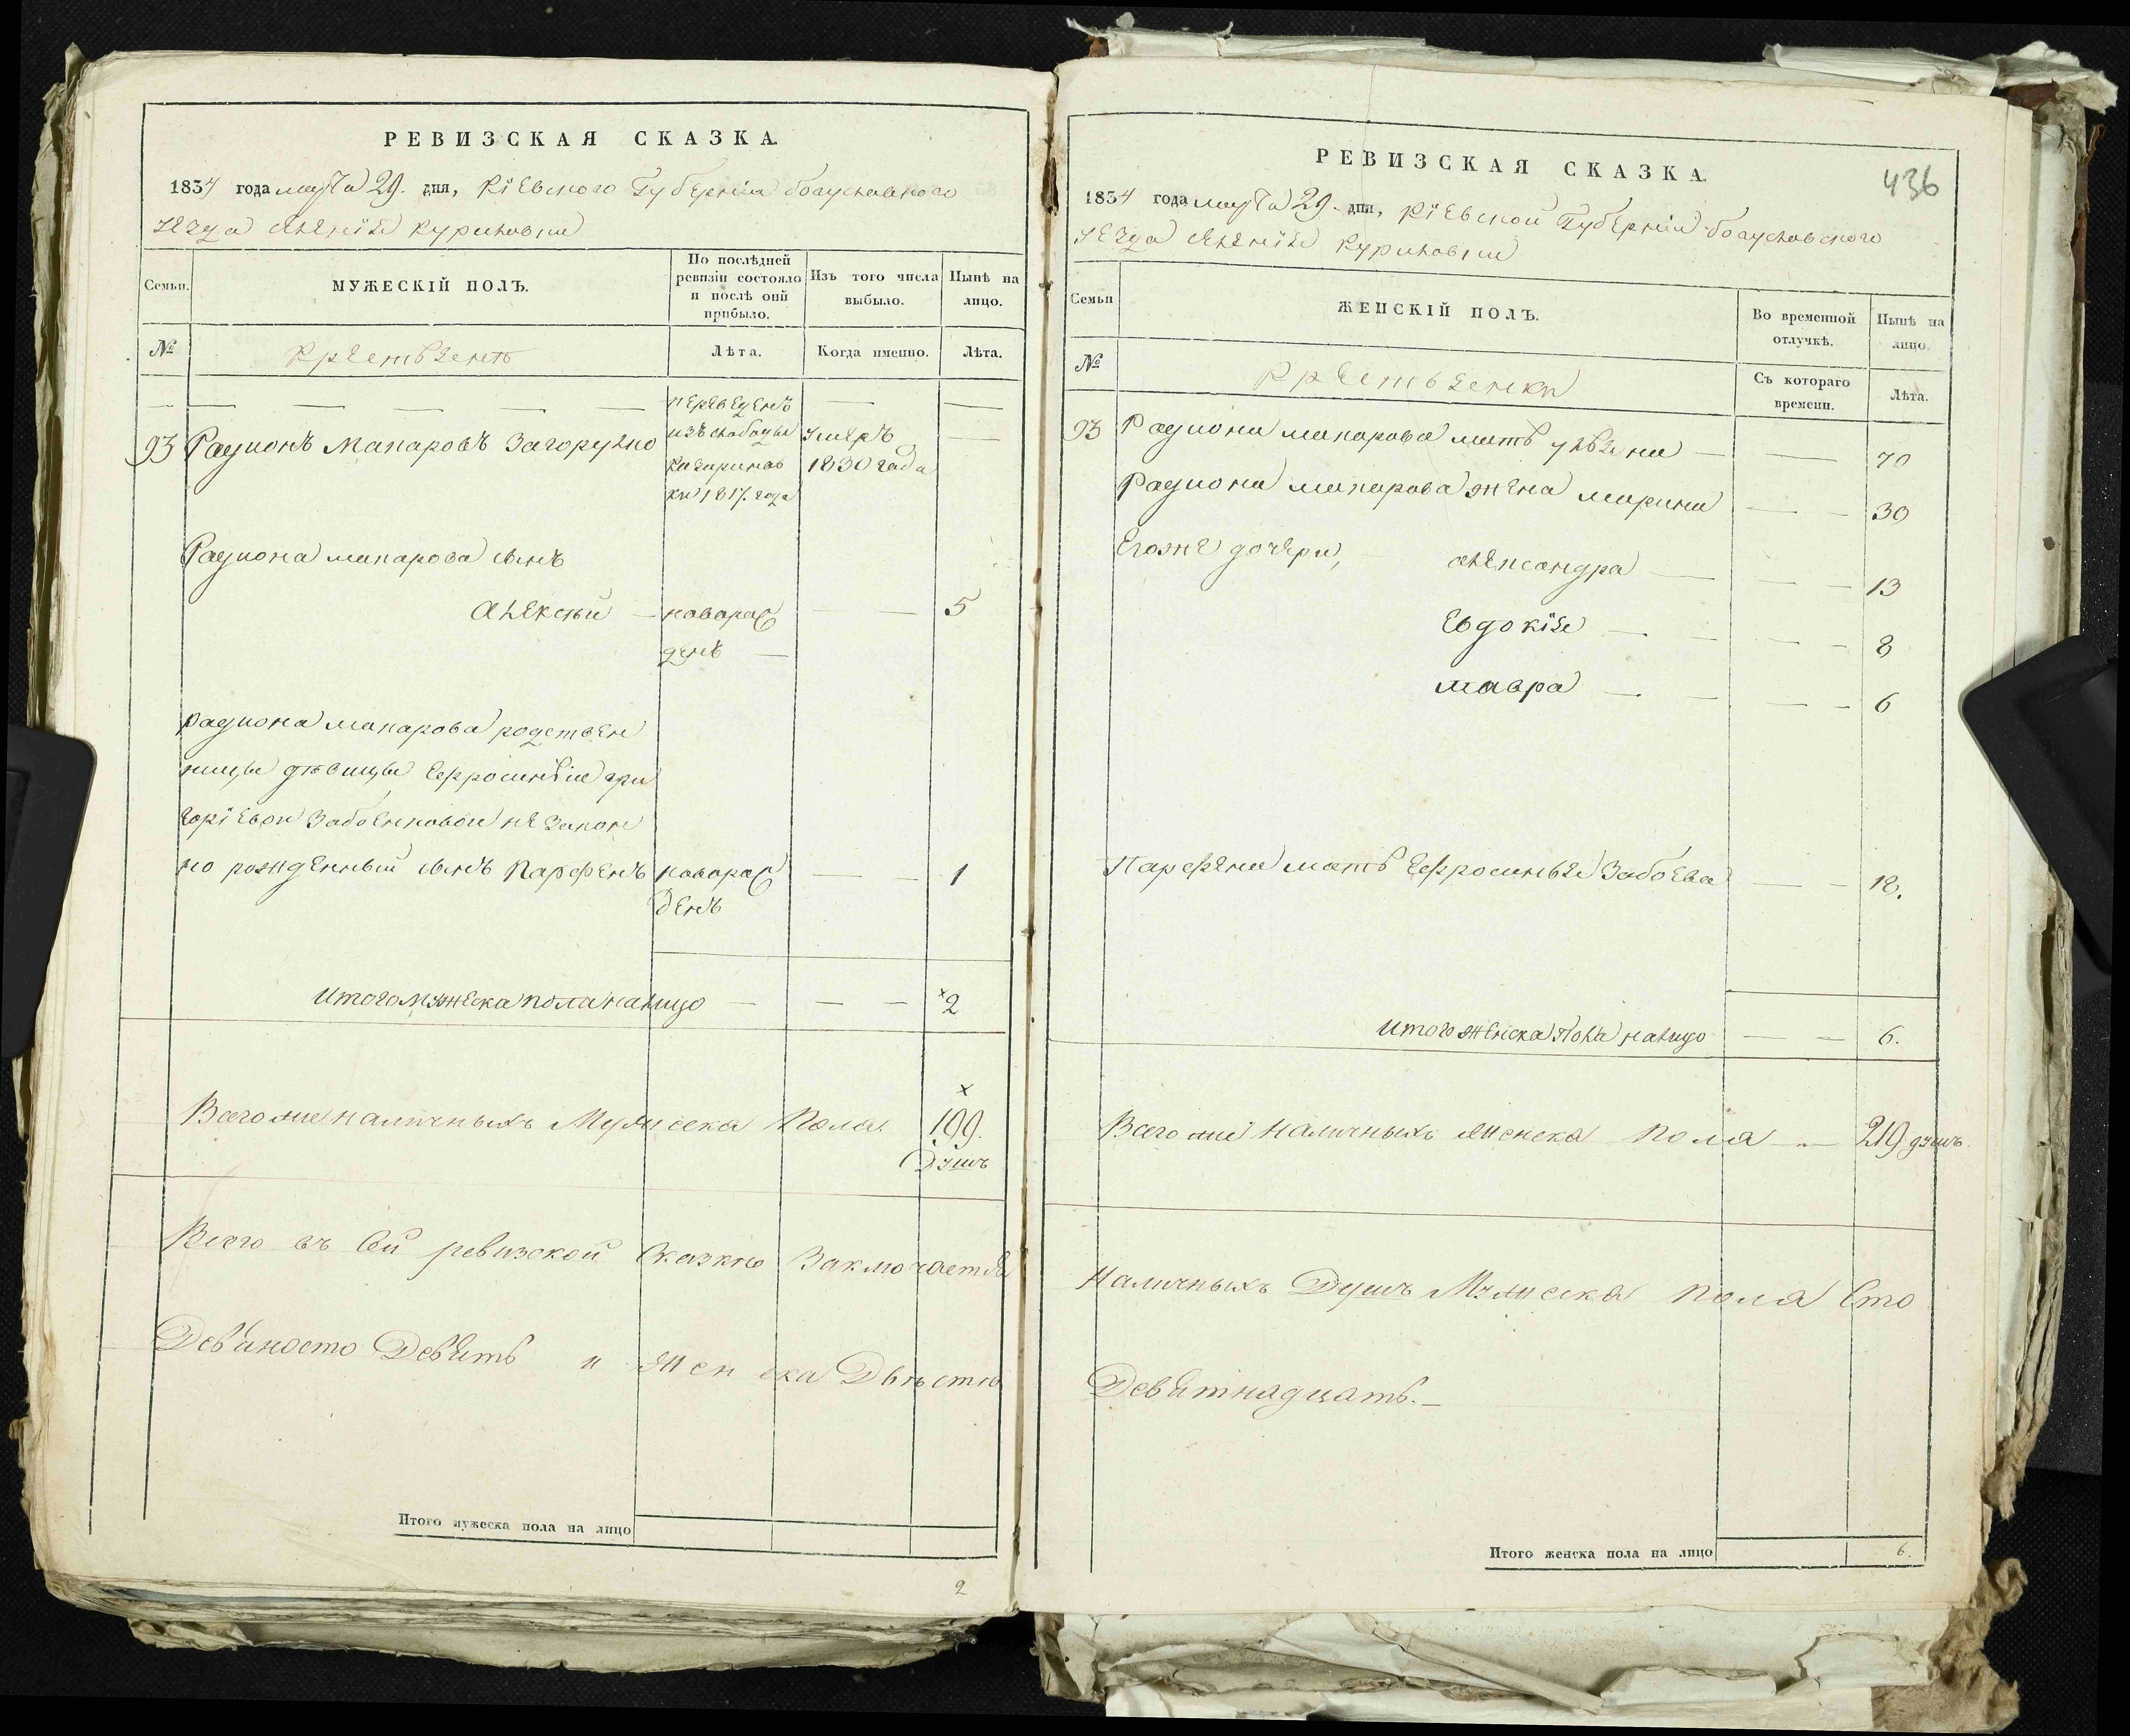 РЕВИЗСКАЯ СКАЗКА.
1834 года марта 29. дня, Кіевской Губерніи богуславского
уезда
МУЖЕСКІЙ ПОЛЪ.
Семьи.
По послѣдней ревизіи состояло и послѣ оной прибыло.
Изъ того числа выбыло.
Нынѣ на лицо.
№
Лѣта.
Когда именно.
Лѣта.
переведенъ
изъ слободы
ки 1817. года
93 Радионъ Макаровъ Загорулко
умеръ
1830 года
Радиона макарова сынъ
Алексѣй новорож
денъ 5
радиона макарова родствен
ницы дѣвицы Ефросиніи гри
горіевои Забоенковои не закон
но рожденный сынъ Парфенъ новорож
денъ 1
итого мужеска пола налицо 2
Всего же наличныхъ Мужеска Пола 199.
Душъ
Всего въ сей ревизской Сказкѣ Заключается
Девяносто Девять и женска Двѣсти
Итого мужеска пола на лицо
2
436
РЕВИЗСКАЯ СКАЗКА.
1834 года марта 29. дня, Кіевской Губерніи богуславского
уезда
Семьи
ЖЕНСКІЙ ПОЛЪ.
Во временной отлучкѣ.
Нынѣ на лицо.
№
Съ котораго времени.
Лѣта.
93 Радиона макарова мать 70
Радиона макарова жена марина 30
Егоже дочери, александра 13
Евдокія 8
мавра 6
Парфена мать Ефросинья Забоева 18.
итого женска пола налицо 6.
Всего же наличныхъ женска пола 219 душъ
Наличныхъ Душъ Мужеска пола Сто
Девятнадцать.
Итого женска пола на лицо 6.